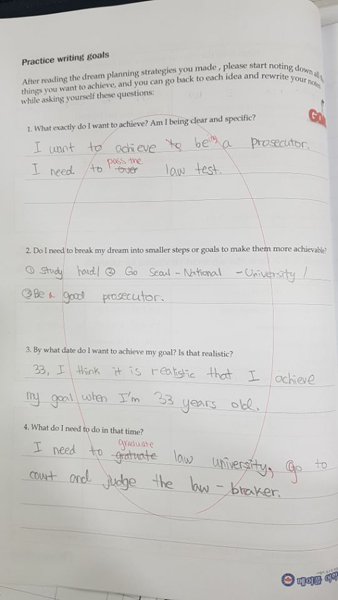 Practice writing goals
After reading the dream planning strategies you made, please start noting down all the
things you want to achieve, and you can go back to each idea and rewrite your notes
while asking yourself these questions:
1. What exactly do I want to achieve? Am I being clear and specific?
I want to achieve to being a prosecutor.
I need to over pass the law test.
2. Do I need to break my dream into smaller steps or goals to make them more achievable?
① Study hard! ② Go Seoul-National-University!
③ Be a good prosecutor.
3. By what date do I want to achieve my goal? Is that realistic?
33, I think it is realistic that I achieve
my goal when I'm 33 years old.
4. What do I need to do in that time?
graduate
I need to gratuate law university, go to
court and judge the law-braker.